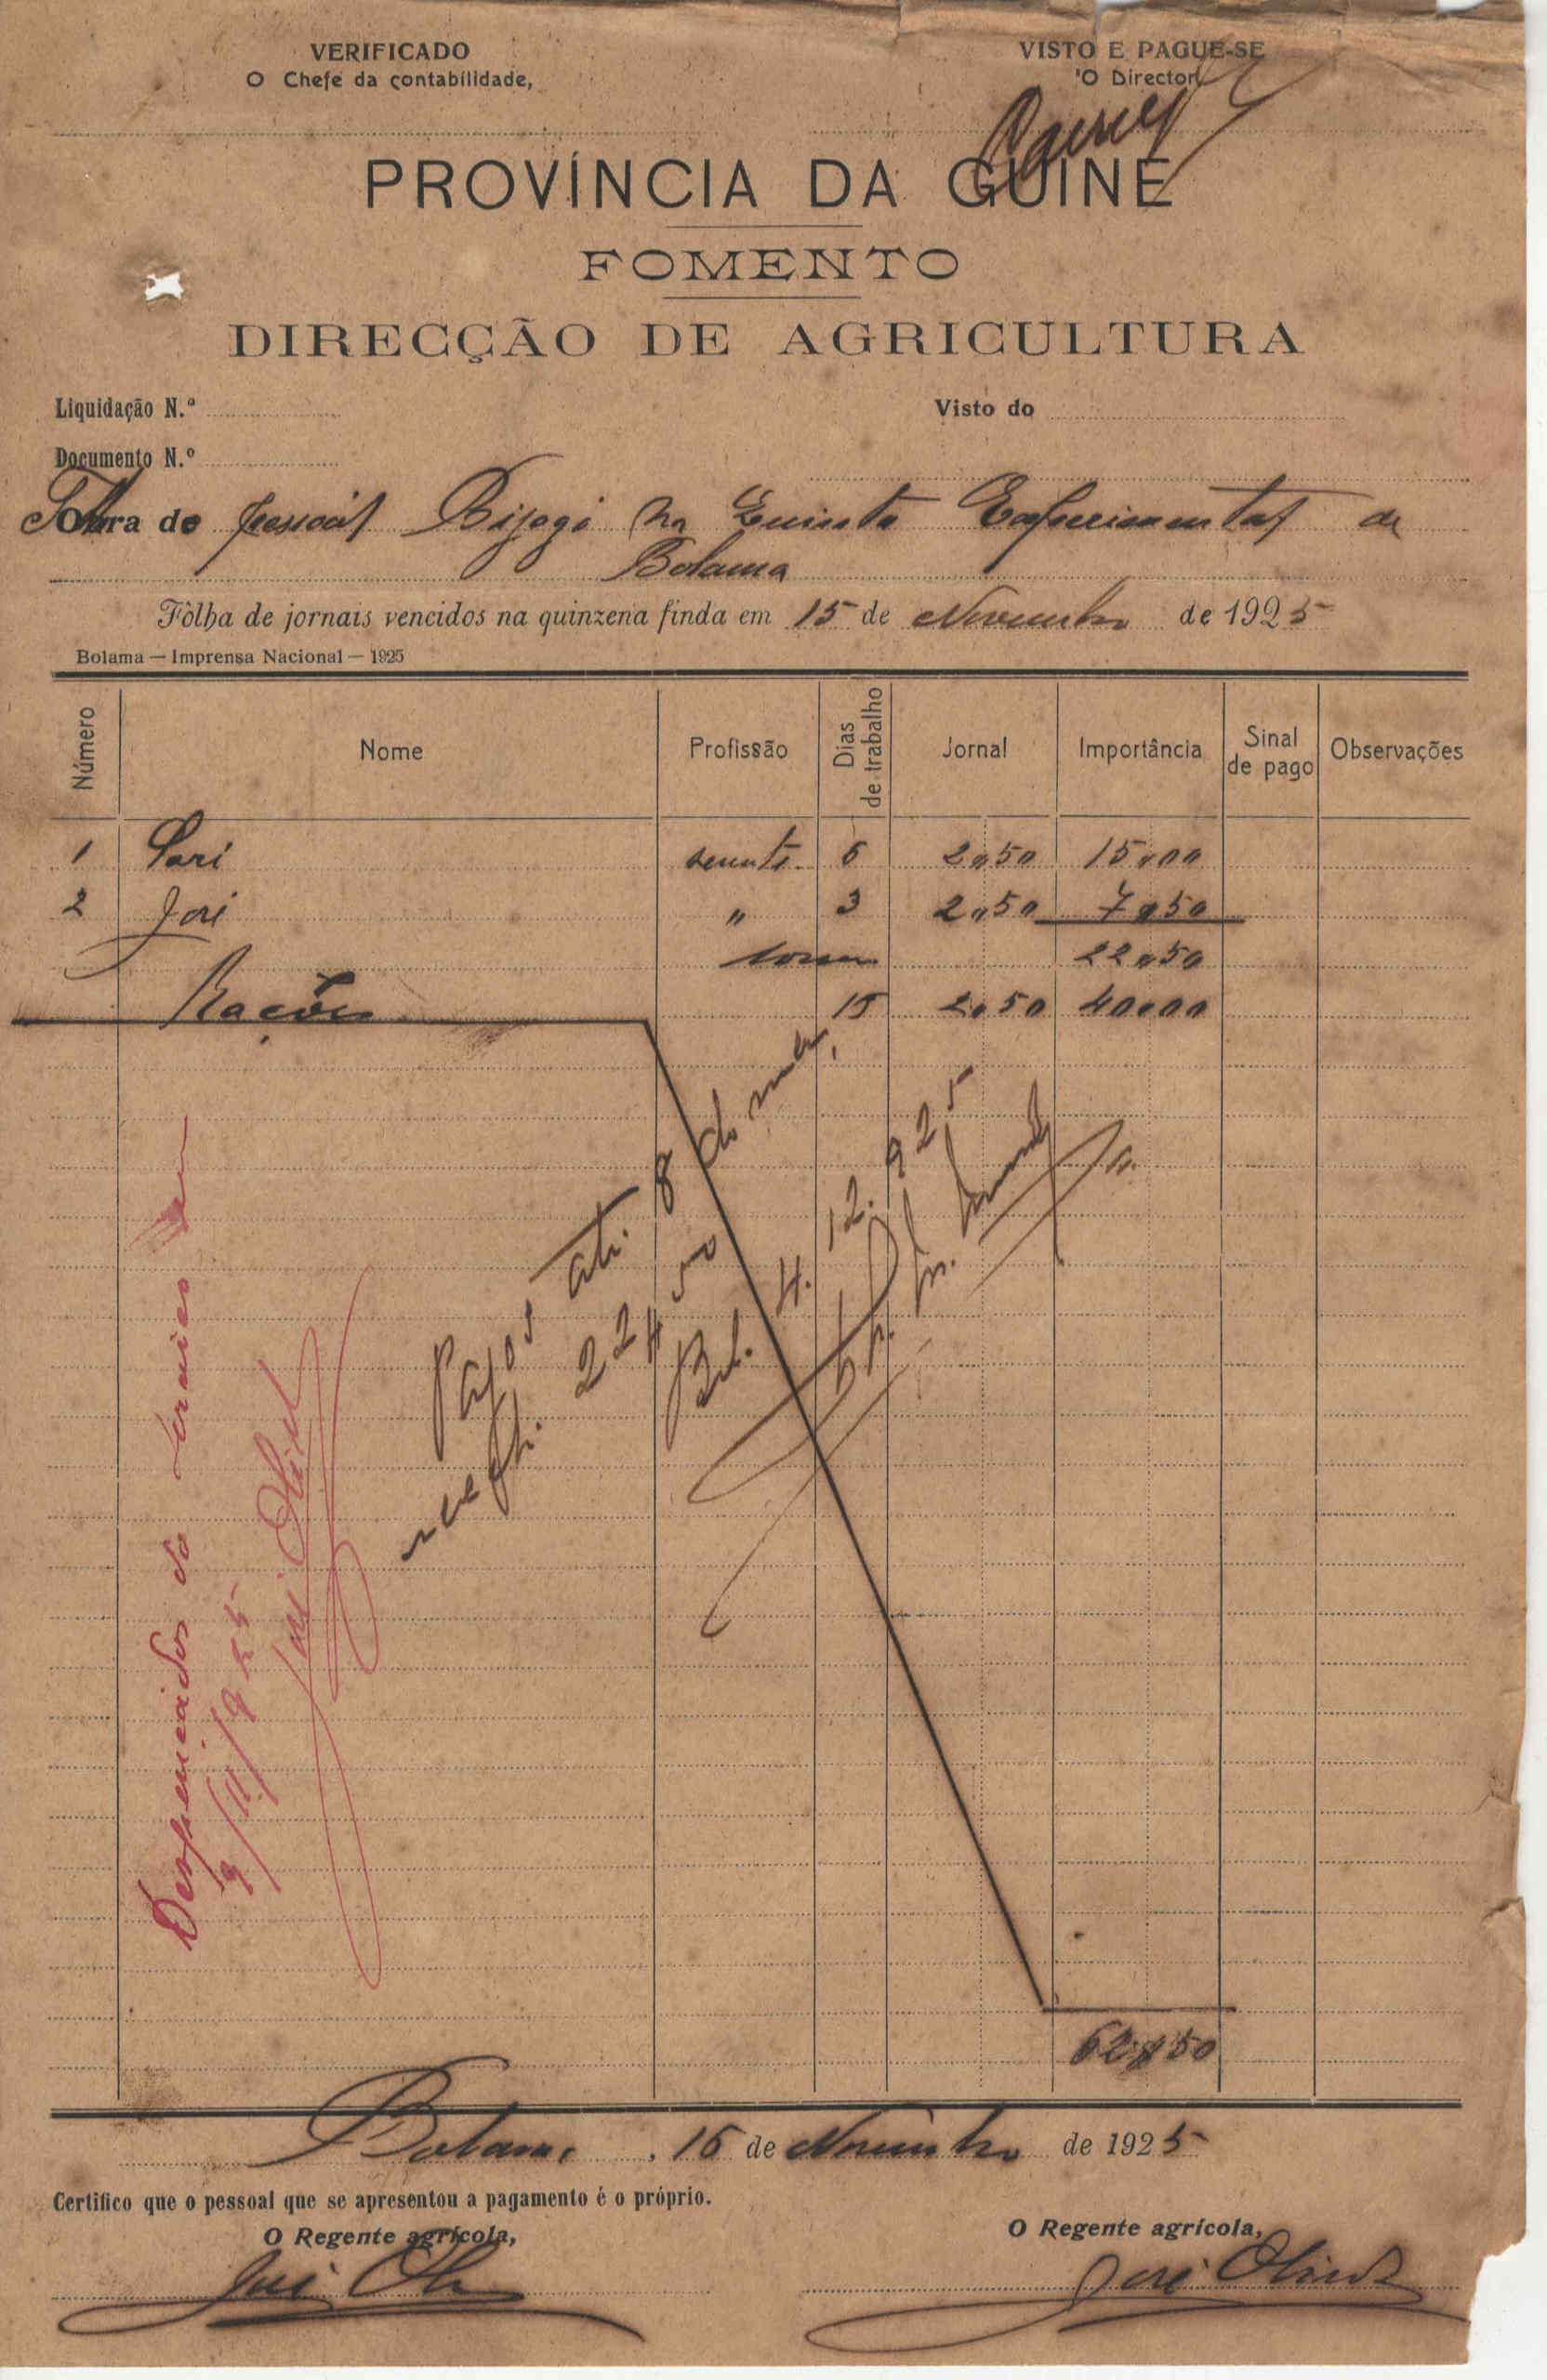 VERIFICADO
O Chefe da contabilidade,
VISTO E PAGUE-SE
O Director
PROVÍNCIA DA GUINÉ
FOMENTO
DIRECÇÃO DE AGRICULTURA
Liquidação N.º
Visto do
Documento N.º
Obra de pessoal Bijagó na Quinta Experimental de
Bolama
Fôlha de jornais vencidos na quinzena finda em 15 de Novembro de 1925
Bolama — Imprensa Nacional — 1925
Número Nome Profissão Dias de trabalho Jornal Importância Sinal de pago Observações
1 servente 6 2$50 15$00
2 José " 3 2$50 7$50
soma 22$50
Rações 15 2$50 40$00
Pagos até 8 do mez,
22$50
Bol. 4.12.925
Despedidos do serviço em
9/11/925
José Oliveira
62$50
Bolama, 16 de Novembro de 1925
Certifico que o pessoal que se apresentou a pagamento é o próprio.
O Regente agrícola,
O Regente agrícola,
José Oliveira
José Oliveira